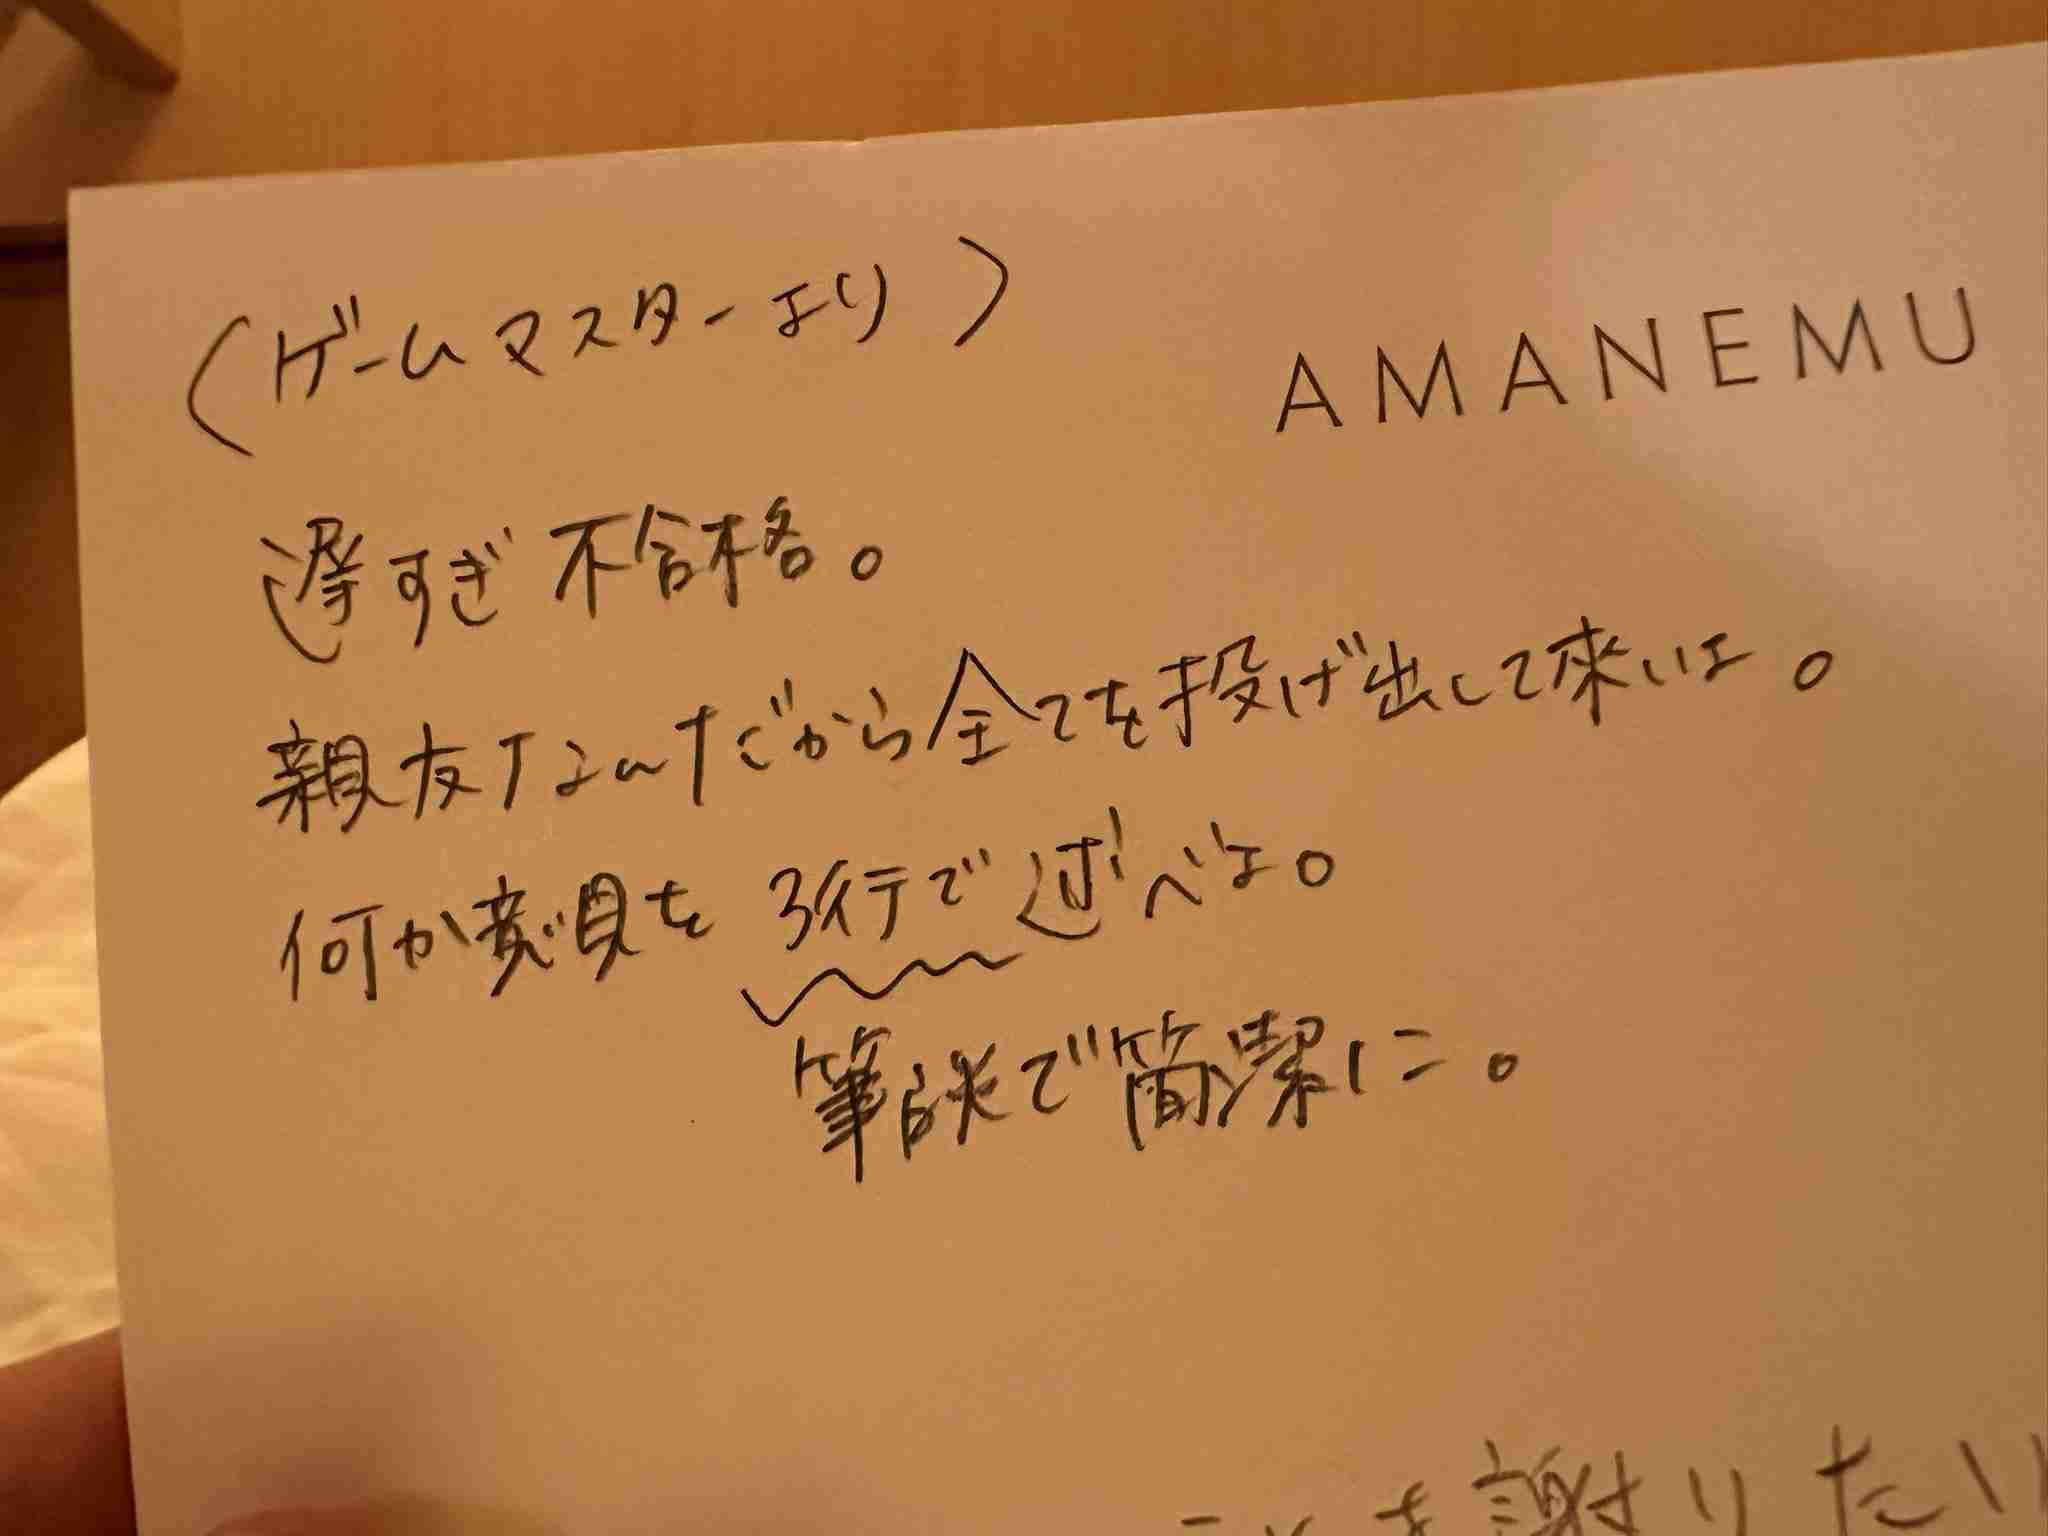 〈ゲームマスターより〉
AMANEMU
遅すぎ不合格。
親友なんだから全てを投げ出して来いよ。
何か意見を3行で述べよ。
筆談で簡潔に。
を謝りたい